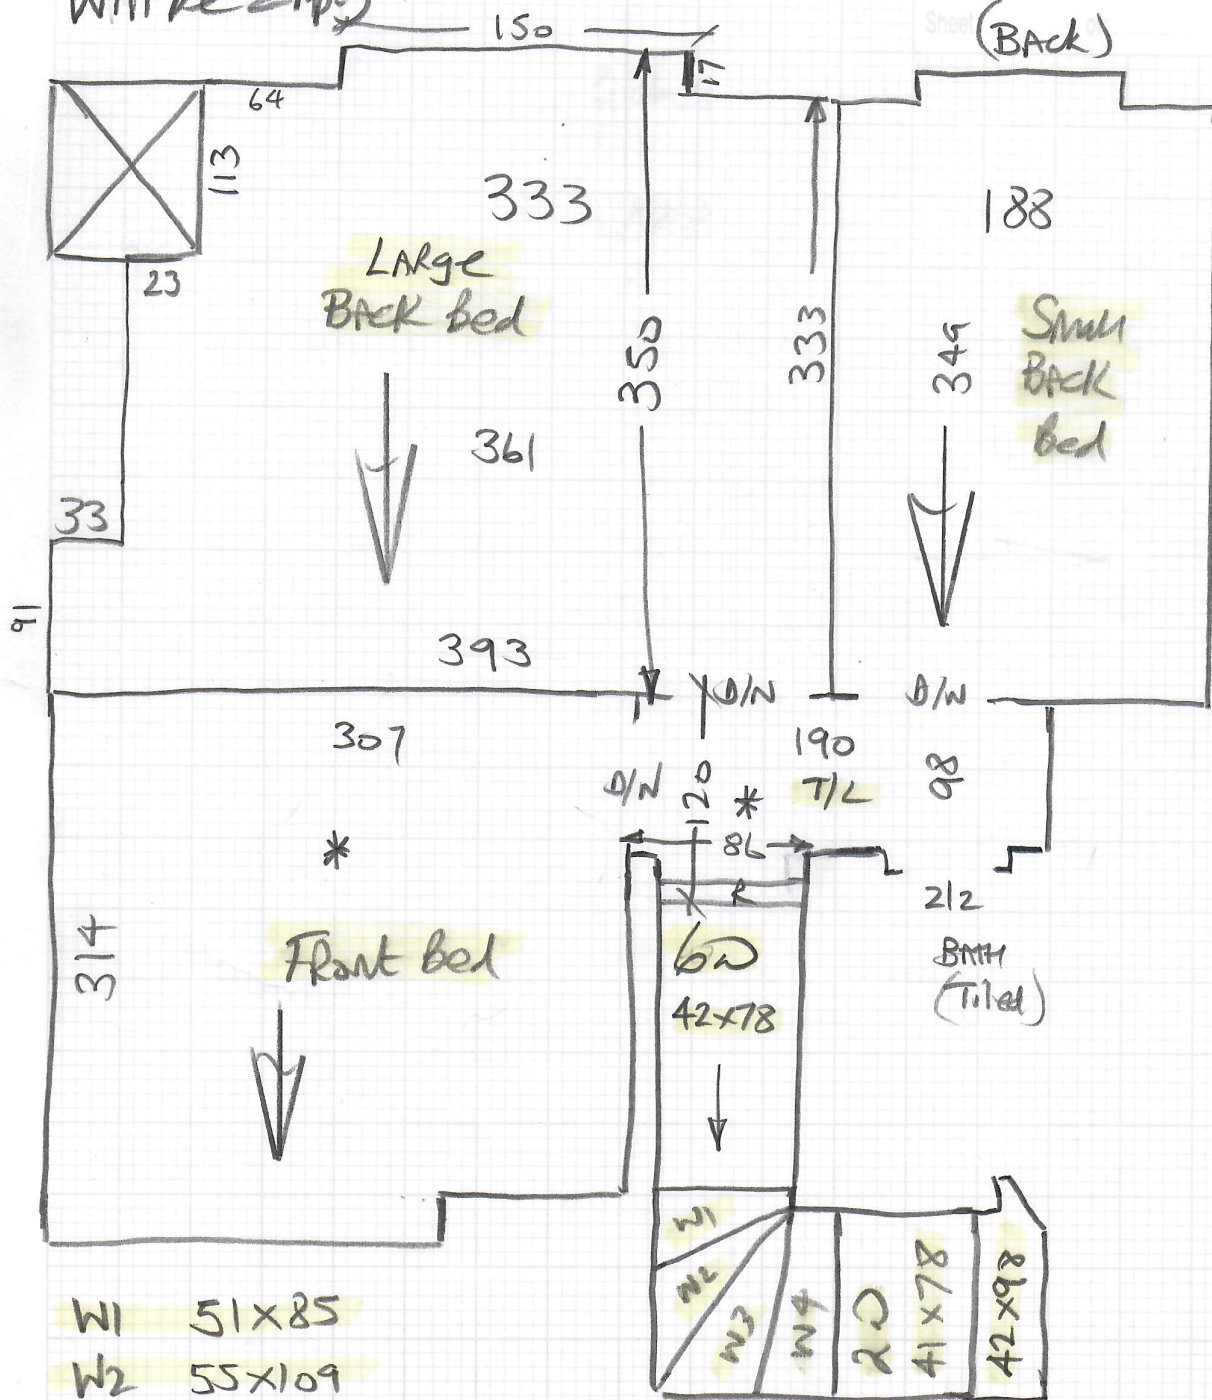 150
(BACK)
17
64
113
333
188
LARge
BACK Bed
23
350
333
349
Small
BACK
Bed
361
33
91
393
D/W
D/W
307
190
T/L
98
D/W
120
*
86
*
R
212
BATH
(Tiled)
314
FRont Bed
6D
42x78
W1
W2
W3
W4
2D
41x78
42x98
W1 51x85
W2 55x109